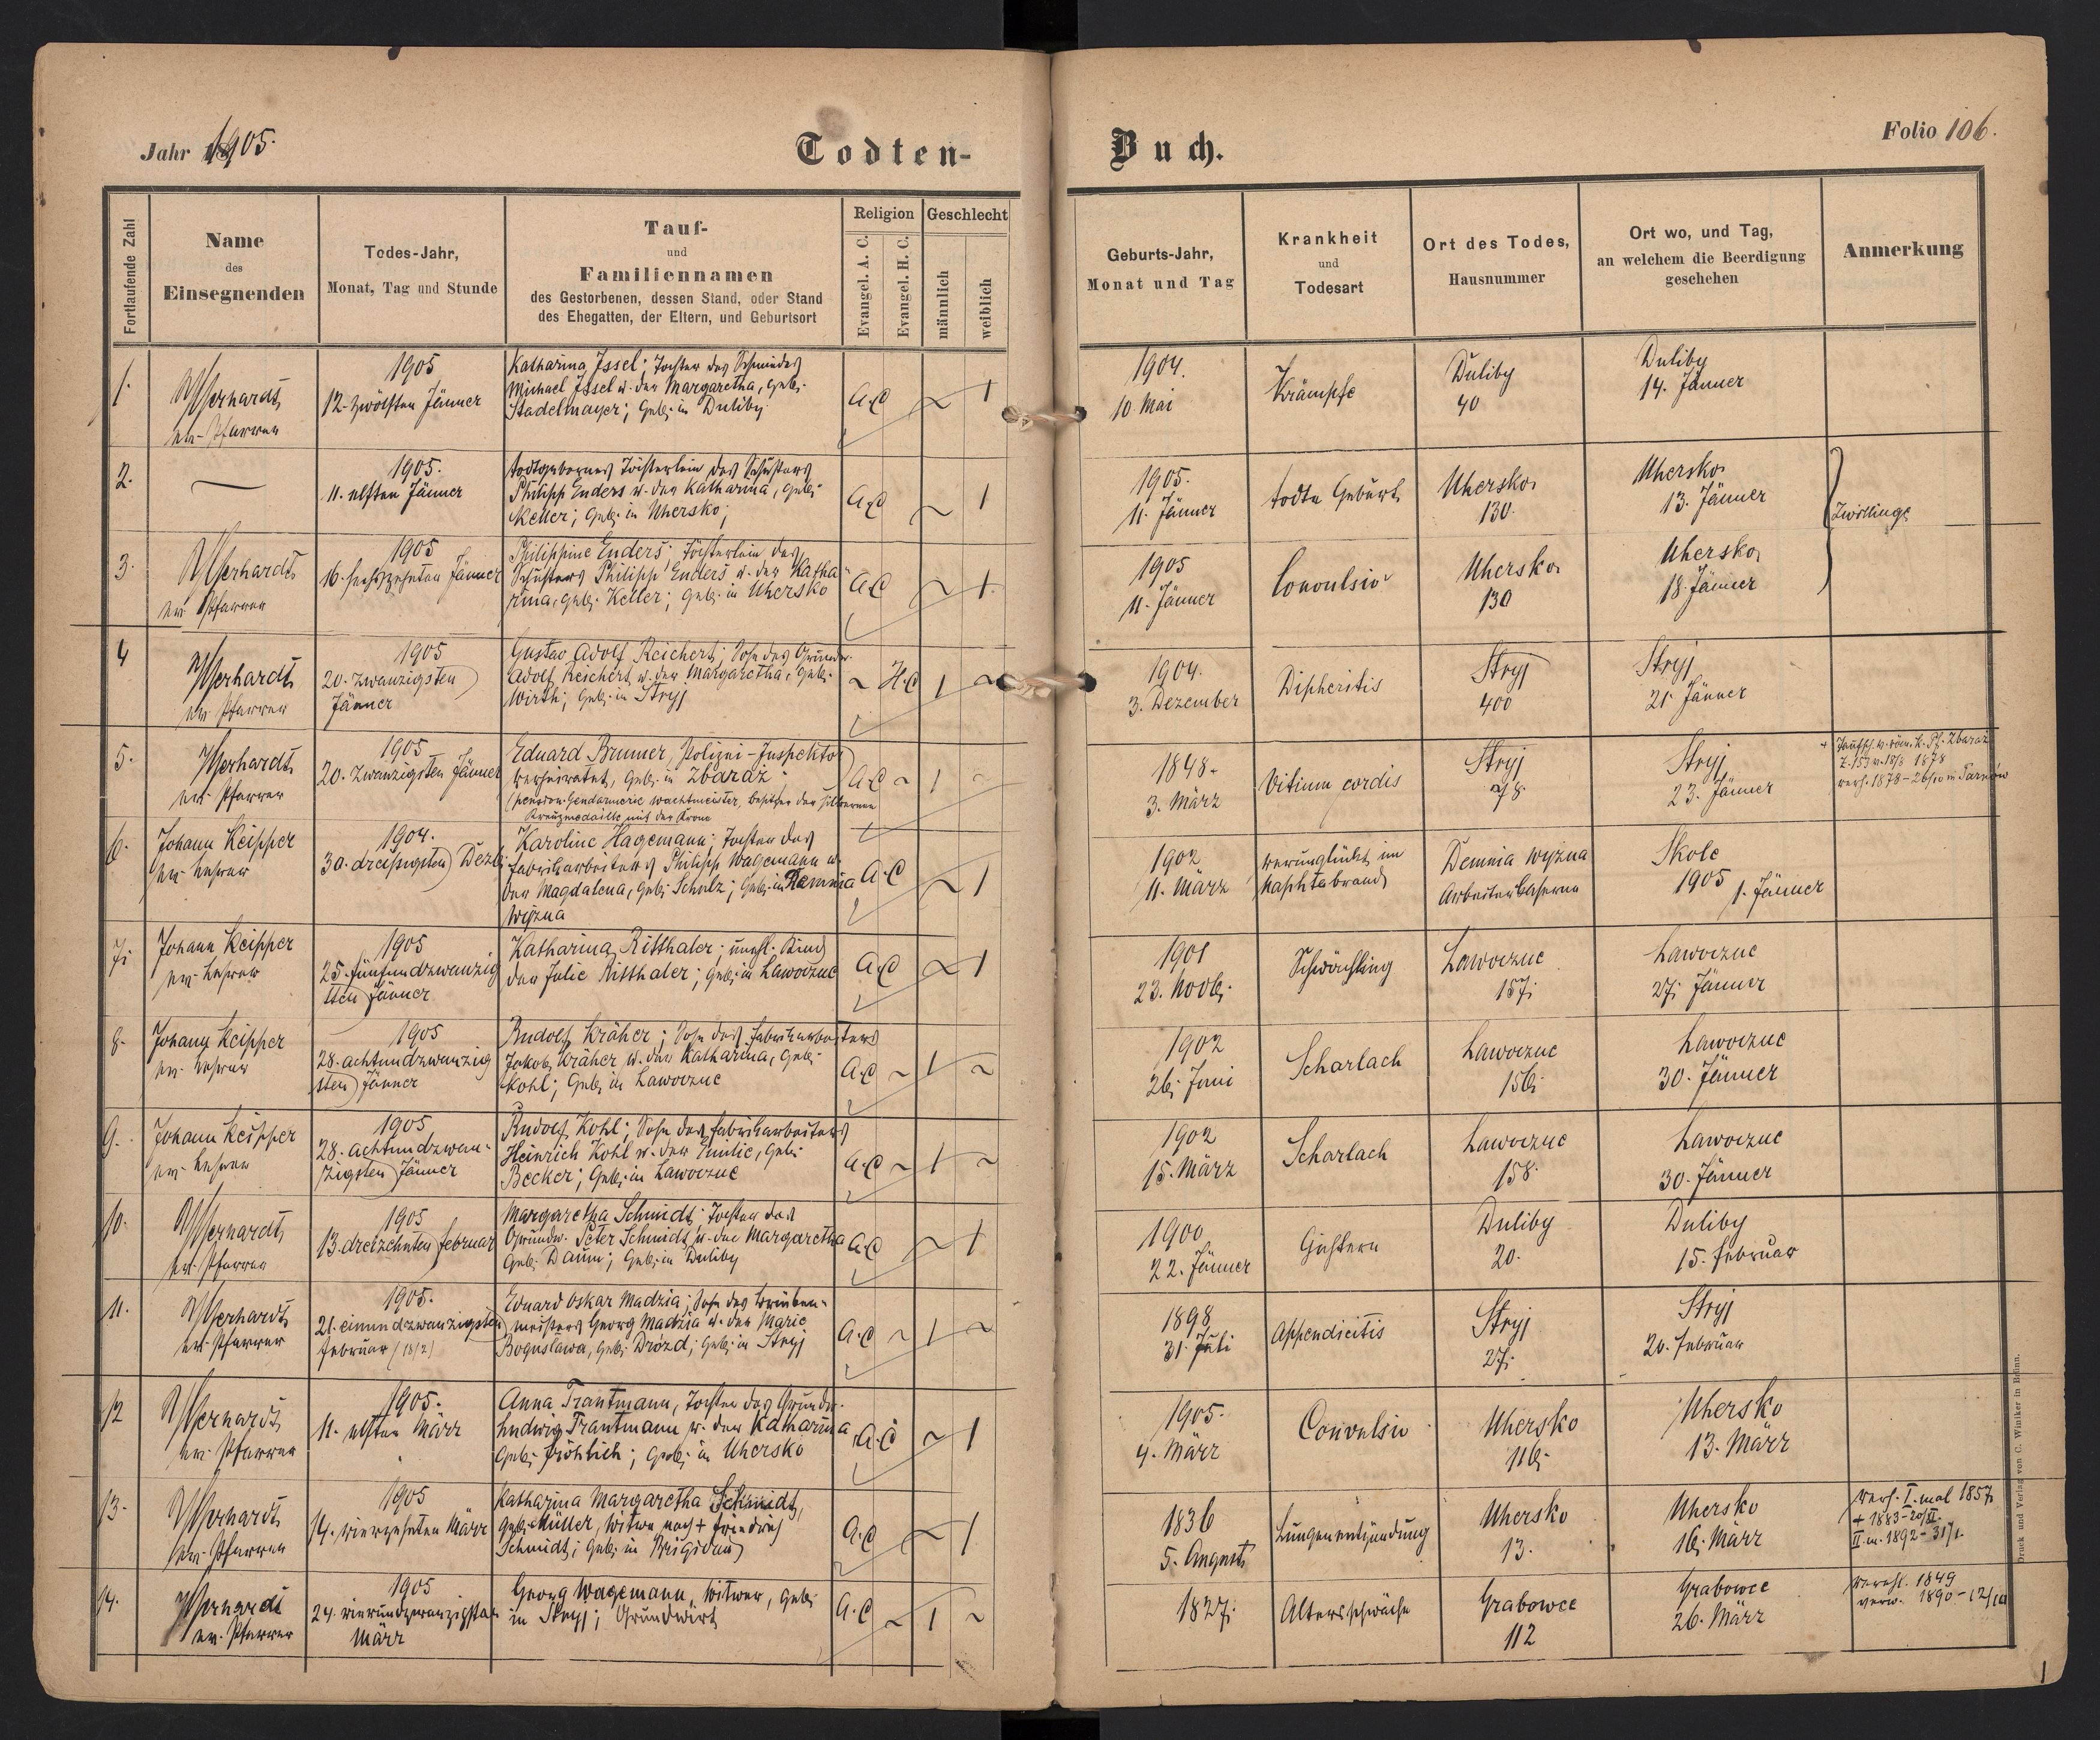 Jahr 1905.
Todten-
Buch.
Folio 106.
Fortlaufende Zahl
Name
des
Einsegnenden
Todes-Jahr,
Monat, Tag und Stunde
Tauf-
und
Familiennamen
des Gestorbenen, dessen Stand, oder Stand
des Ehegatten, der Eltern, und Geburtsort
Religion
Evangel. A. C.
Evangel. H. C.
Geschlecht
männlich
weiblich
Geburts-Jahr,
Monat und Tag
Krankheit
und
Todesart
Ort des Todes,
Hausnummer
Ort wo, und Tag,
an welchem die Beerdigung
geschehen
Anmerkung
1.
ev. Pfarrer
1905
12. zwölften Jänner
Katharina Issel; Tochter des Schmiedes
Michael Issel u. der Margaretha, geb.
Stadelmayer; geb. in Duliby
A.C
1
1904.
10 Mai
Krämpfe
Duliby
40
Duliby
14. Jänner
2.
1905.
11. elften Jänner
todtgebornes Töchterlein des Schusters
Philipp Enders u. der Katharina, geb.
Keller; geb. in Uhersko;
A.C
1
1905.
11. Jänner
todte Geburt
Uhersko
130.
Uhersko
13. Jänner
Zwillinge
3.
ev. Pfarrer
1905
16. sechszehnten Jänner
Philippine Enders; Töchterlein des
Schusters Philipp Enders u. der Katha-
rina, geb. Keller; geb. in Uhersko
A.C
1
1905
11. Jänner
Convulsio
Uhersko
130
Uhersko
18. Jänner
4
ev. Pfarrer
1905
20. zwanzigsten
Jänner
Gustav Adolf Reichert; Sohn des Grundw.
Adolf Reichert u. der Margaretha, geb.
Wirth; geb. in Stryj
H.C
1
1904.
3. Dezember
Dipheritis
Stryj
400
Stryj
21. Jänner
5.
ev. Pfarrer
1905
20. zwanzigsten Jänner
Eduard Brunner, Polizei-Inspektor
verheiratet, geb. in Zbaraż
Gendarmerie Wachtmeister, Besitzer der silbernen
Kreuzmedaille mit der Krone
A.C
1
1848.
3. März
Vitium cordis
Stryj
78.
Stryj
23. Jänner
1878
verh. 1878-26/10 in Tarnów
6.
Johann Keipper
ev. Lehrer
1904.
30. dreißigsten Dezb.
Karoline Hagemann; Tochter des
Fabriksarbeiters Philipp Wagemann u.
der Magdalena, geb. Scholz; geb. in Demnia
Wyzna
A.C
1
1902
11. März
verunglückt im
Naphtabrand
Demnia Wyzna
Arbeiterkaserne
Skole
1905 1. Jänner
7.
Johann Keipper
ev. Lehrer
1905
25. fünfundzwanzig
sten Jänner
Katharina Ritthaler; unehl. Kind
der Julie Ritthaler; geb. in Lawoczne
A.C
1
1901
23. Novb.
Schwächling
Lawoczne
157.
Lawoczne
27. Jänner
8.
Johann Keipper
ev. Lehrer
1905
28. achtundzwanzig
sten Jänner
Rudolf Kräher; Sohn des Fabriksarbeiters
Jakob Kräher u. der Katharina, geb.
Kohl; geb. in Lawoczne
A.C
1
1902
26. Juni
Scharlach
Lawoczne
156.
Lawoczne
30. Jänner
9.
Johann Keipper
ev. Lehrer
1905
28. achtundzwan-
zigsten Jänner
Rudolf Kohl; Sohn des Fabriksarbeiters
Heinrich Kohl u. der Emilie, geb.
Becker; geb. in Lawoczne
A.C
1
1902
15. März
Scharlach
Lawoczne
158.
Lawoczne
30. Jänner
10.
ev. Pfarrer
1905
13. dreizehnten Februar
Margaretha Schmidt; Tochter des
Grundw. Peter Schmidt u. der Margaretha
geb. Daum; geb. in Duliby
A.C
1
1900
22. Jänner
Duliby
20.
Duliby
15. Februar
11.
ev. Pfarrer
1905.
21. einundzwanzigsten
Februar (18/2)
Eduard Oskar Madzia; Sohn des
meisters Georg Madzia u. der Marie
Boguslawa, geb. Drózd; geb. in Stryj
A.C
1
1898
31. Juli
Appendicitis
Stryj
27.
Stryj
20. Februar
12
ev. Pfarrer
1905.
11. elften März
Anna Trautmann, Tochter des Grundw.
Ludwig Trautmann u. der Katharina
geb. Fröhlich; geb. in Uhersko
A.C
1
1905.
4. März
Convulsio
Uhersko
116.
Uhersko
13. März
13.
ev. Pfarrer
1905
14. vierzehnten März
Katharina Margaretha Schmidt,
geb. Müller, Witwe nach + Friedrich
Schmidt; geb. in Brigidau
A.C
1
1836
5. August
Lungenentzündung
Uhersko
13.
Uhersko
16. März
verh. I. mal 1857
+ 1883-20/XI.
II. m. 1892-31/1.
14.
ev. Pfarrer
1905
24. vierundzwanzigsten
März
Georg Wagemann, Witwer, geb.
in Stryj; Grundwirt
A.C
1
1827.
Altersschwäche
Grabowce
112
Grabowce
26. März
verehl. 1849
verw. 1890-12/10
Druck und Verlag von C. Winiker in Brünn.